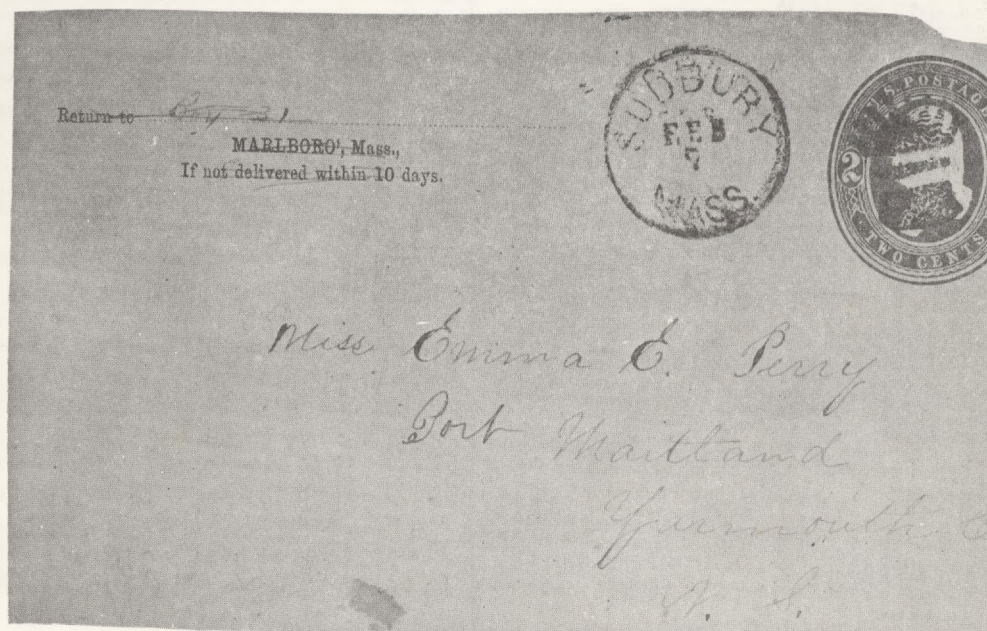 Return to Box 31
MARLBORO', Mass.,
If not delivered within 10 days.
SUDBURY
FEB
7
MASS.
U.S. POSTAGE
2
TWO CENTS
Miss Emma E. Perry
Port Maitland
Yarmouth
N. S.